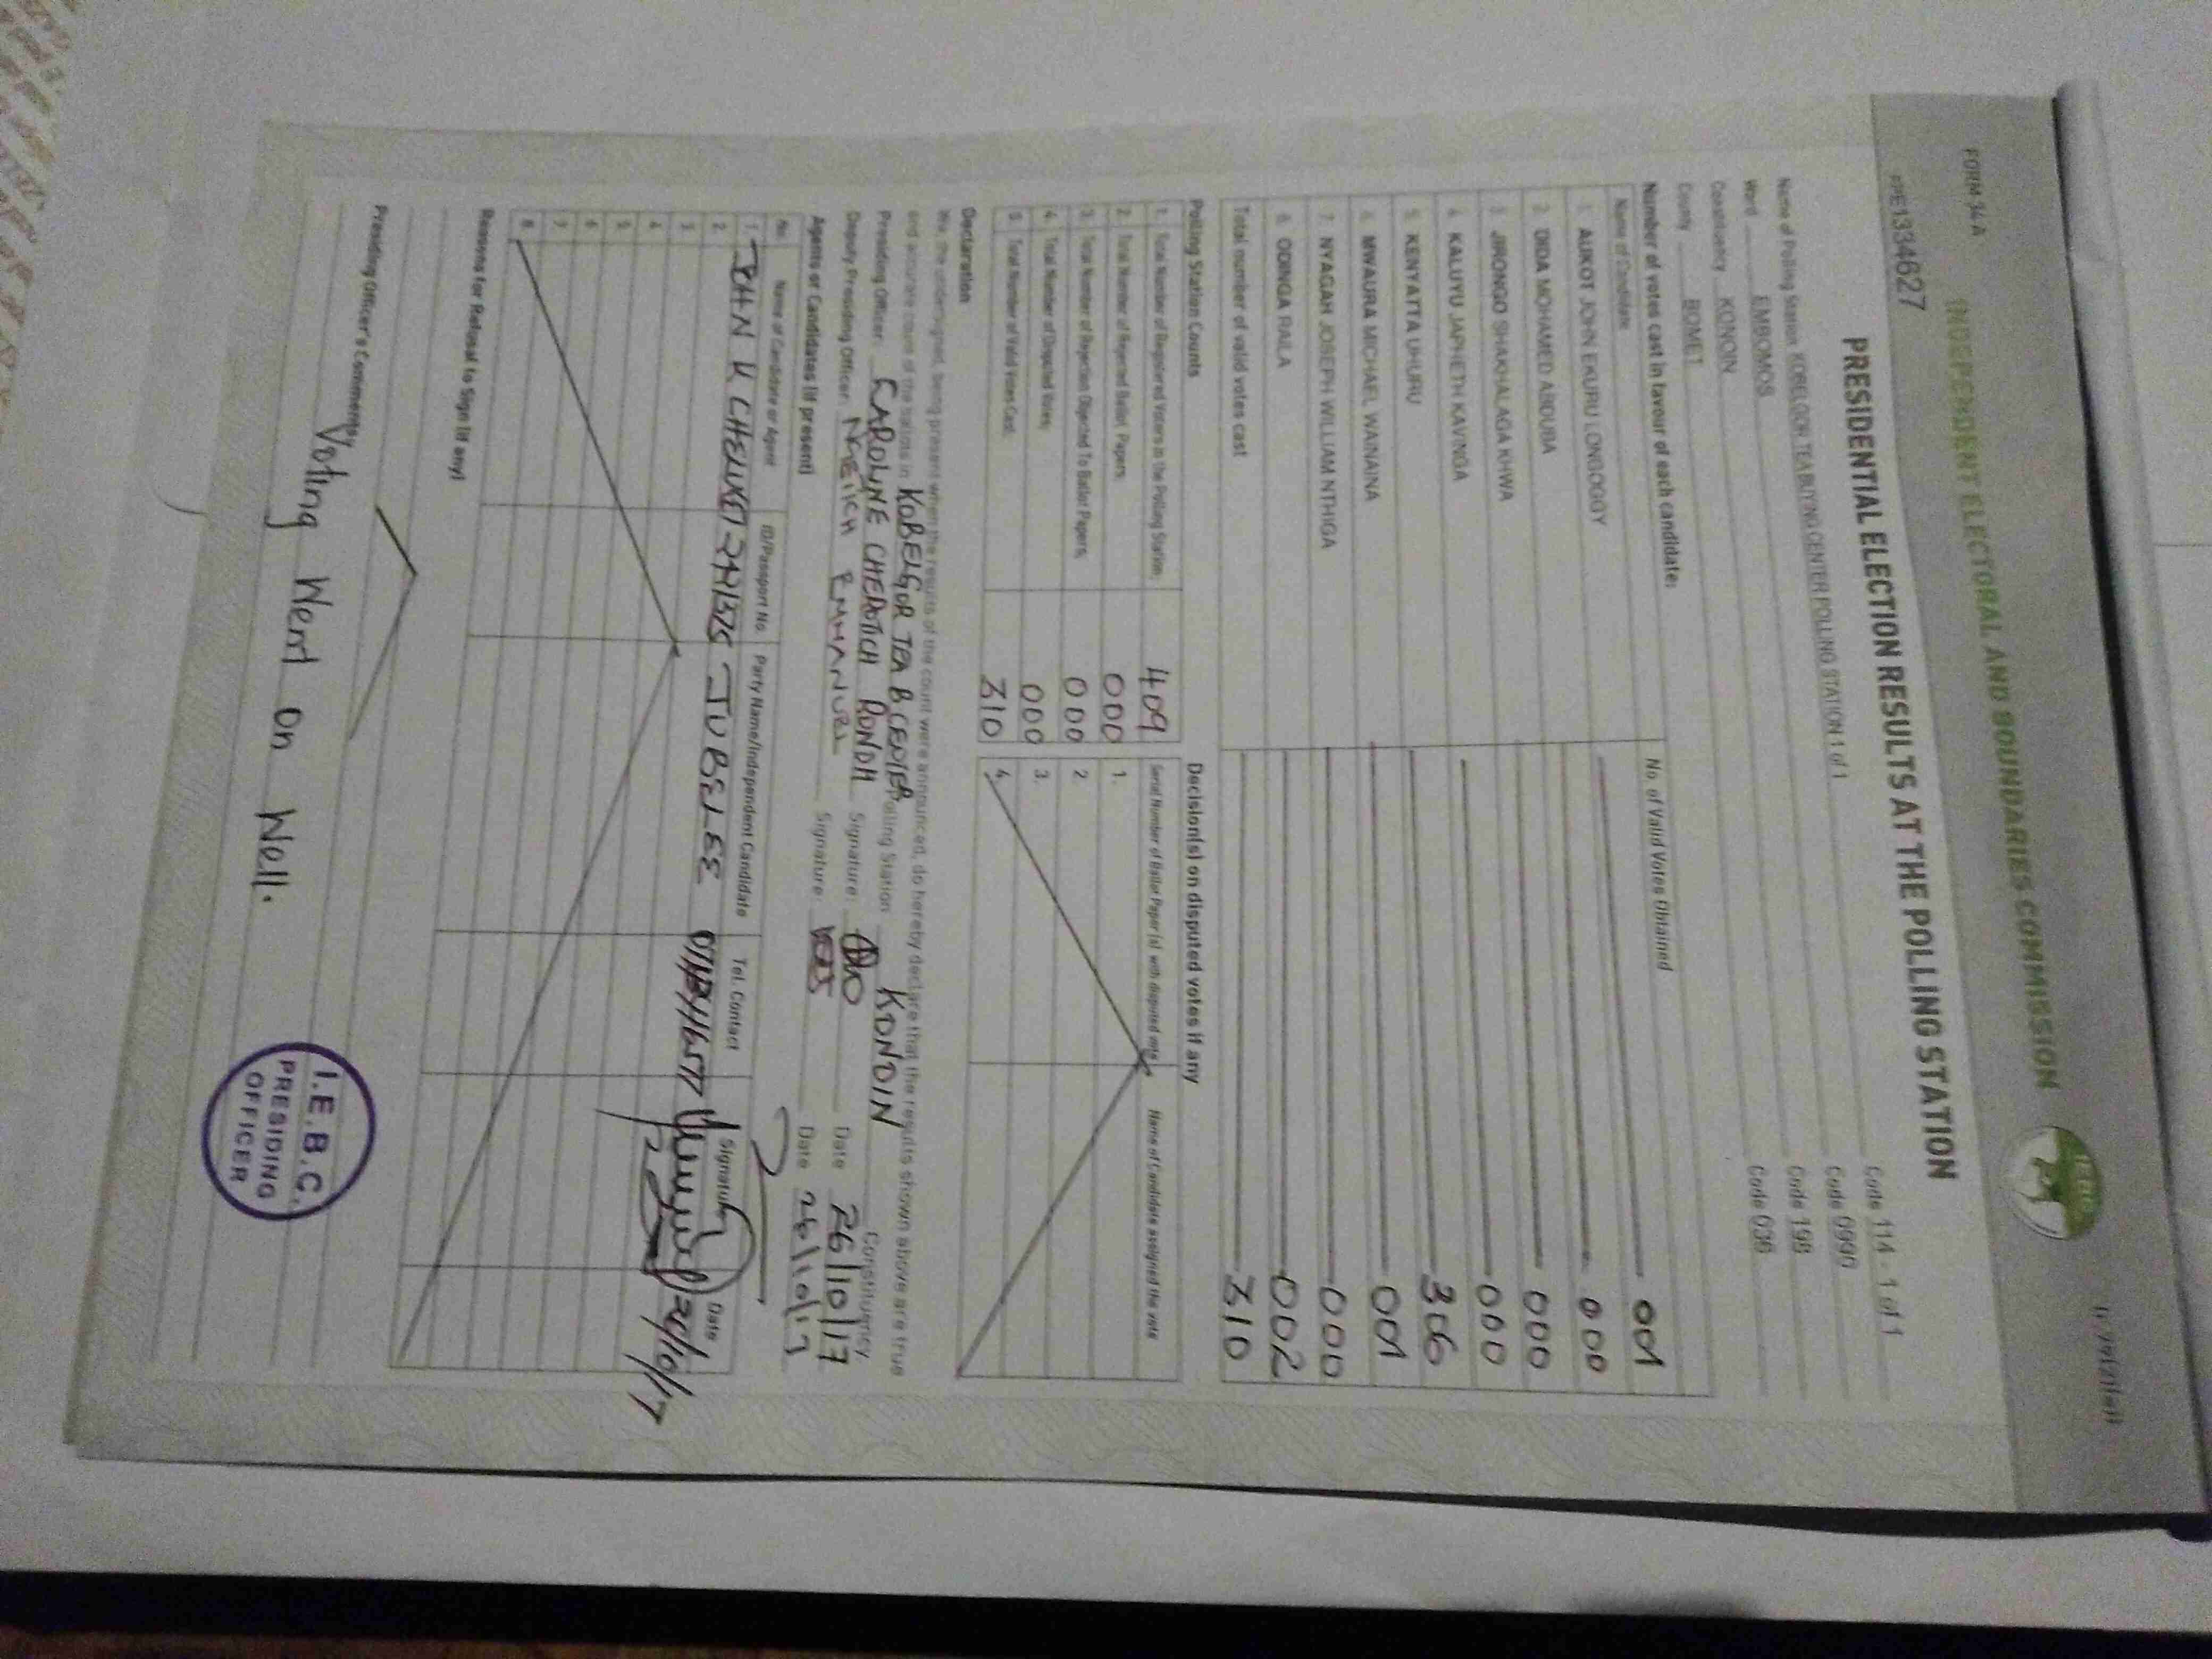 FORM 34A
INDEPENDENT ELECTORAL AND BOUNDARIES COMMISSION
IEBC
PRESIDENTIAL ELECTION RESULTS AT THE POLLING STATION
1334627
Name of Polling Station KOBELGOR TEA BUYING CENTER POLLING STATION 1 of 1 Code 114 - 1 of 1
Ward EMBOMOS Code 0990
Constituency KONOIN Code 198
County BOMET Code 036
Number of votes cast in favour of each candidate:
Name of Candidate No. of Valid Votes Obtained
1. AUKOT JOHN EKURU LONGOGGY 001
2. DIDA MOHAMED ABDUBA 000
3. JIRONGO SHAKHALAGA KHWA 000
4. KALUYU JAPHETH KAVINGA 000
5. KENYATTA UHURU 306
6. MWAURA MICHAEL WAINAINA 001
7. NYAGAH JOSEPH WILLIAM NTHIGA 000
8. ODINGA RAILA 002
Total number of valid votes cast 310
Polling Station Counts
1. Total Number of Registered Voters in the Polling Station; 409
2. Total Number of Rejected Ballot Papers; 000
3. Total Number of Rejection Objected To Ballot Papers; 000
4. Total Number of Disputed Votes; 000
5. Total Number of Valid Votes Cast; 310
Decision(s) on disputed votes if any
Serial Number of Ballot Paper (s) with disputed vote Name of Candidate assigned the vote
1.
2.
3.
4.
Declaration
We, the undersigned, being present when the results of the count were announced, do hereby declare that the results shown above are true
and accurate count of the ballots in KOBELGOR TEA B CENTER Polling Station KONOIN Constituency
Presiding Officer: CAROLYNE CHEPOTICH Signature: Date 26/10/17
Deputy Presiding Officer: Signature: Date 26/10/17
Agents or Candidates (if present)
No. Name of Candidate or Agent ID/Passport No. Party Name/Independent Candidate Tel. Contact Signature Date
1. JOHN K JUBILEE
2.
3.
4.
5.
6.
7.
8.
Reasons for Refusal to Sign (if any)
Presiding Officer's Comments
Voting Went on Well.
I.E.B.C.
PRESIDING
OFFICER